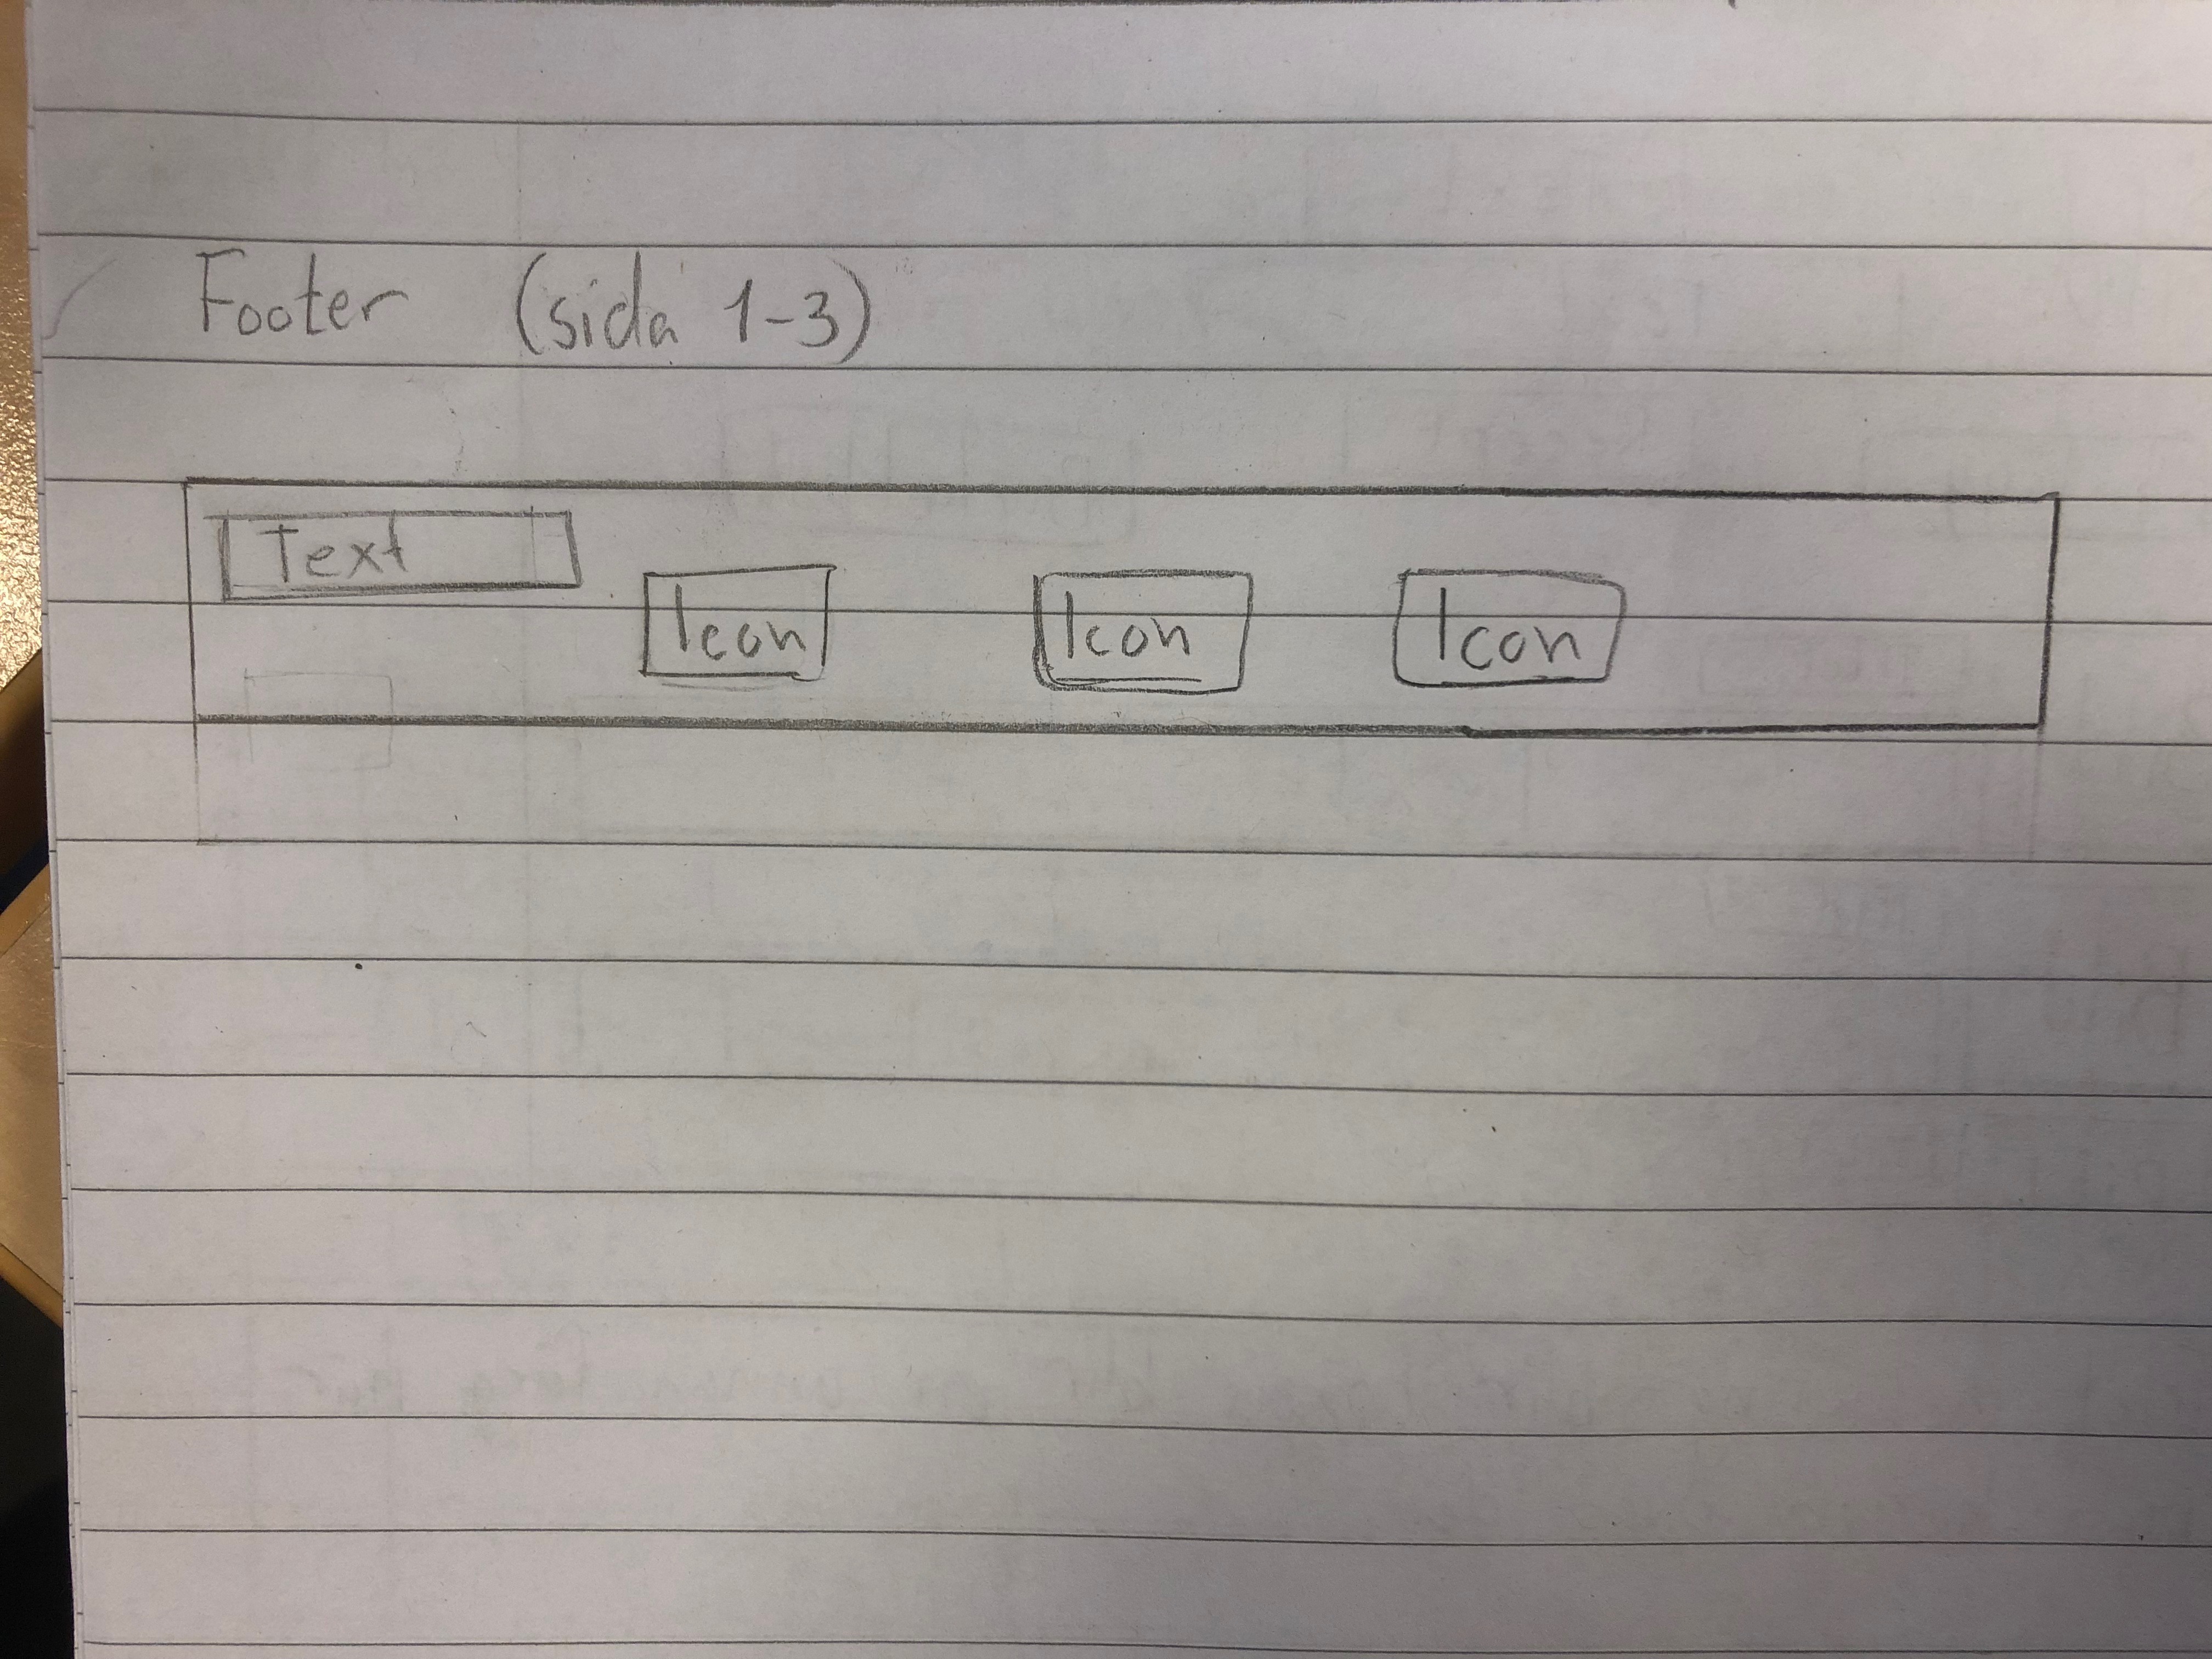 Footer (sida 1-3)
Text
Icon Icon Icon